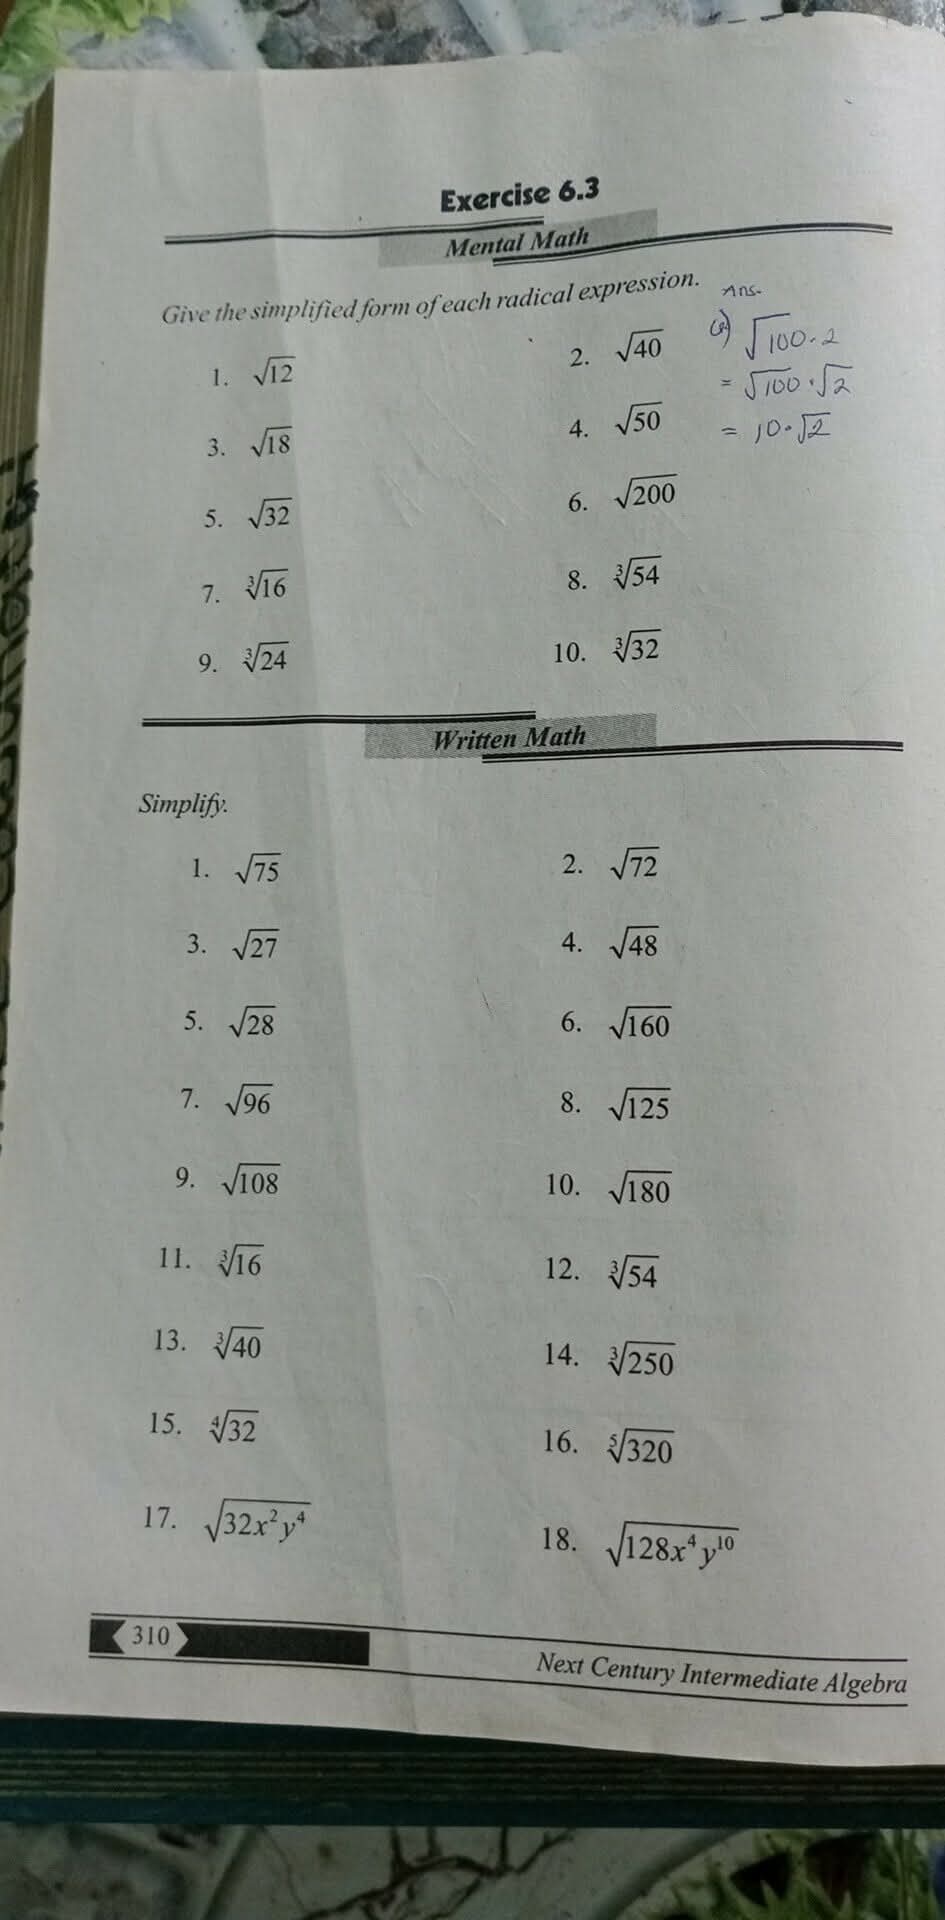 Exercise 6.3
Mental Math
Give the simplified form of each radical expression.
1. √12
2. √40
3. √18
4. √50
5. √32
6. √200
7. ∛16
8. ∛54
9. ∛24
10. ∛32
Ans.
√100·2
= √100·√2
= 10·√2
Written Math
Simplify.
1. √75
2. √72
3. √27
4. √48
5. √28
6. √160
7. √96
8. √125
9. √108
10. √180
11. ∛16
12. ∛54
13. ∛40
14. ∛250
15. ∜32
16. ⁵√320
17. √(32x²y⁴)
18. √(128x⁴y¹⁰)
310
Next Century Intermediate Algebra